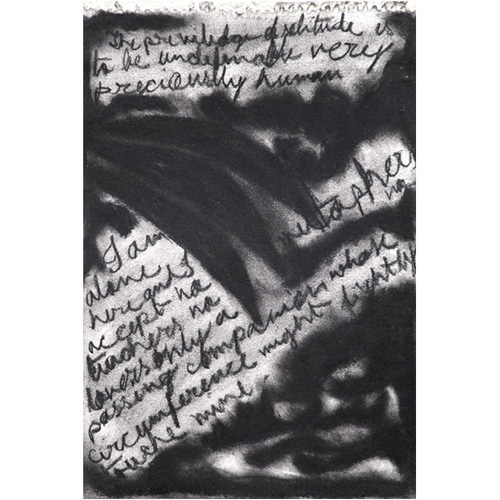 The priviledge of solitude is
to be undefinable very
preciously human
metaphor
no
I am
alone
here and I
accept no
teachers, no
lovers only a
passing companion whose
circumference might lightly
touche mine.